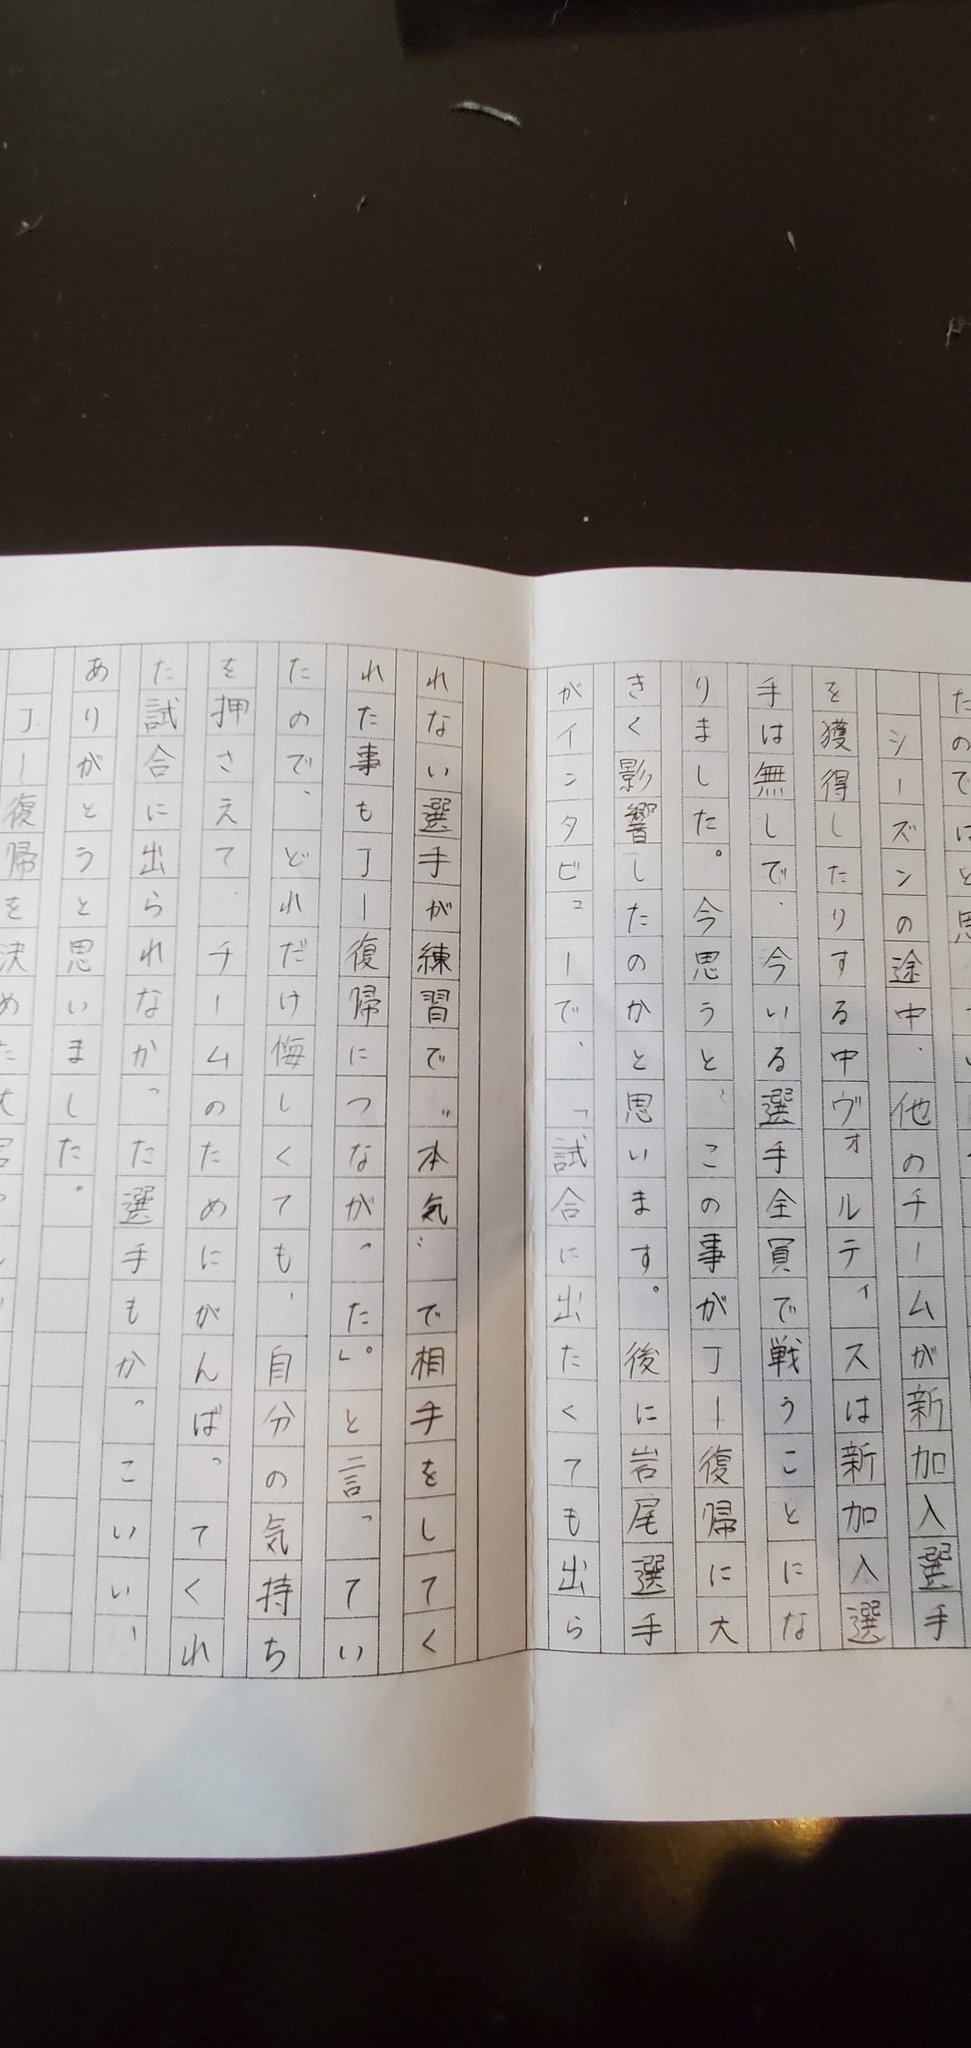 たのではと思
シーズンの途中、他のチームが新加入選手
を獲得したりする中ヴォルティスは新加入選
手は無しで、今いる選手全員で戦うことにな
りました。今思うと、この事がJ1復帰に大
きく影響したのかと思います。後に岩尾選手
がインタビューで、「試合に出たくても出ら
れない選手が練習で"本気"で相手をしてく
れた事もJ1復帰につながった」。と言ってい
たので、どれだけ悔しくても、自分の気持ち
を押さえて、チームのためにがんばってくれ
た試合に出られなかった選手もかっこいい、
ありがとうと思いました。
J1復帰を決めた